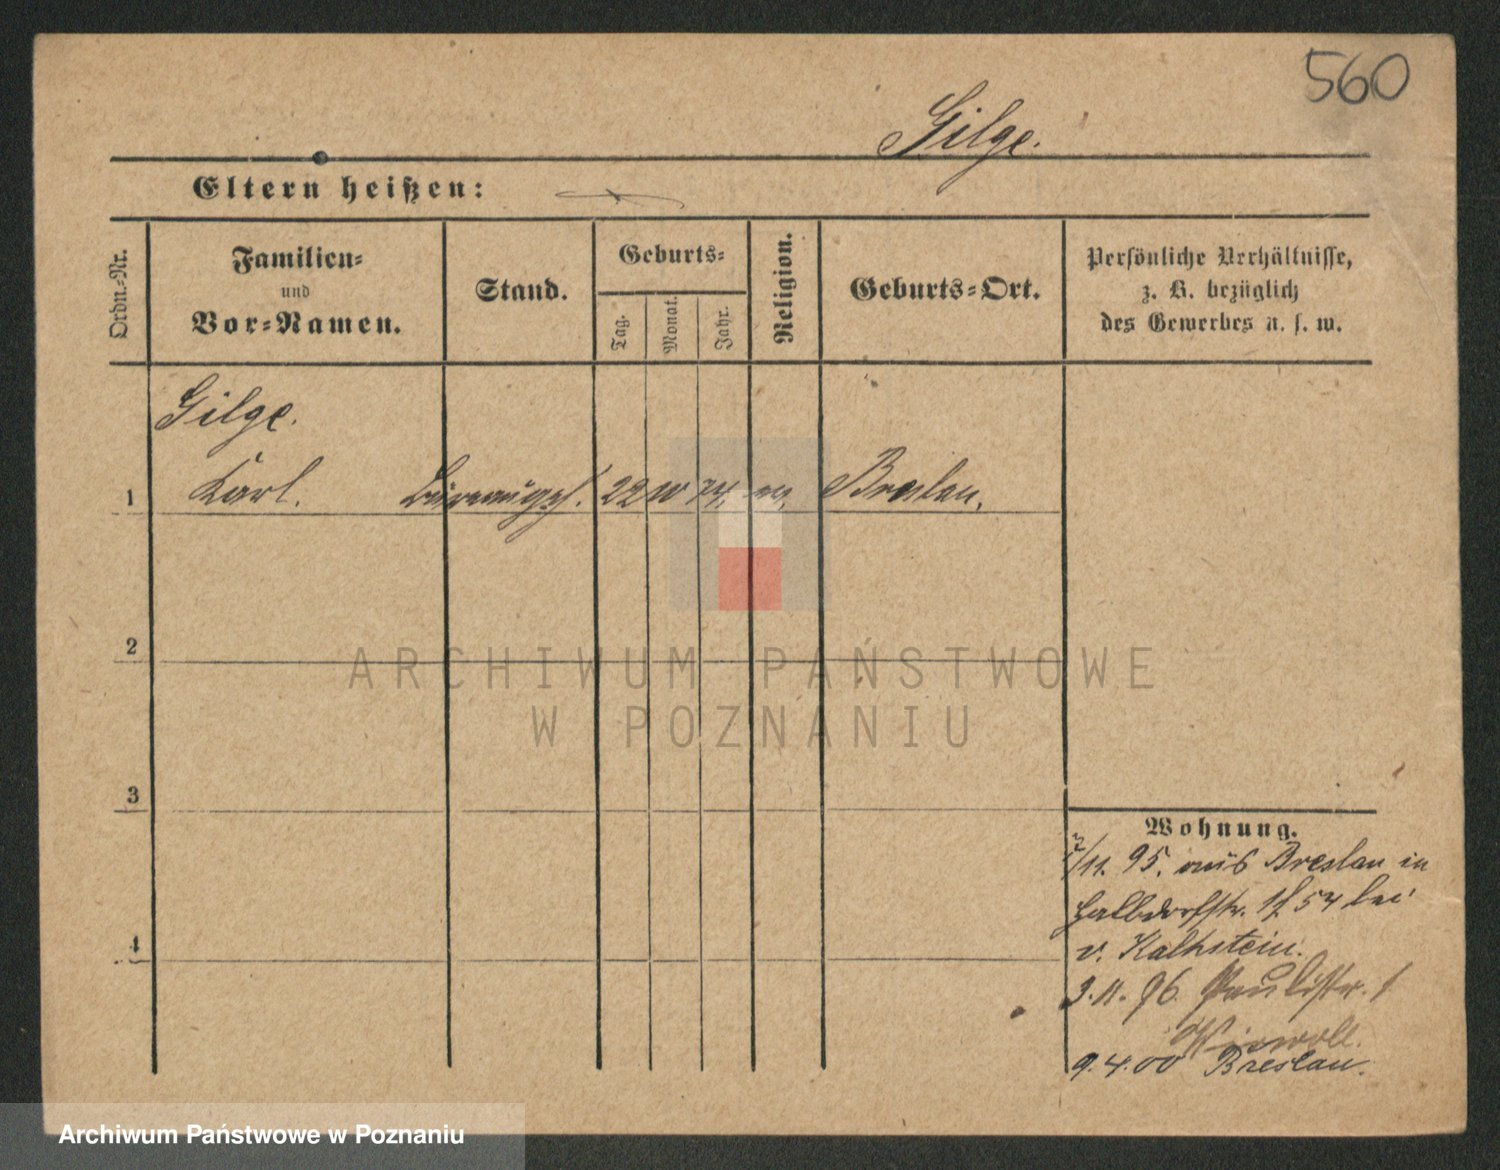 560
Gilge.
Eltern heißen:
Ordn.-Nr.
Familien-
und
Vor-Namen.
Stand.
Geburts-
Tag.
Monat.
Jahr.
Religion.
Geburts-Ort.
Persönliche Verhältnisse,
z. B. bezüglich
des Gewerbes u. s. w.
Gilge.
1 Karl. Bureaugeh. 22 10 74. Breslau.
2
3
4
Wohnung.
/11. 95. aus Breslau in
Halbdorfstr. 54 bei
v. Kalkstein.
3.11.96. Paulistr. 1
9.4.00 Breslau.
ARCHIWUM PAŃSTWOWE
W POZNANIU
Archiwum Państwowe w Poznaniu